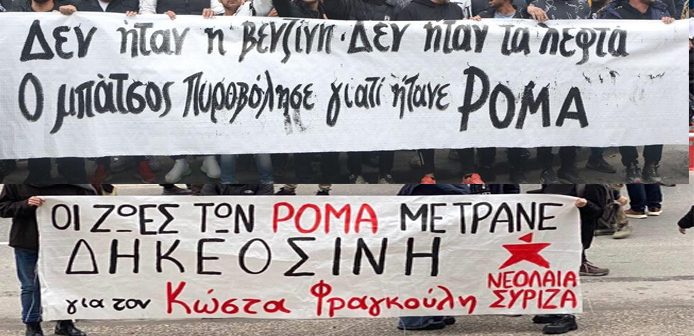 Δεν ήταν η βενζίνη·Δεν ήταν τα λεφτά
Ο μπάτσος Πυροβόλησε γιατί ήτανε ΡΟΜΑ
ΟΙ ΖΩΕΣ ΤΩΝ ΡΟΜΑ ΜΕΤΡΑΝΕ
ΔΗΚΕΟΣΙΝΗ
για τον Κώστα Φραγκούλη
ΝΕΟΛΑΙΑ
ΣΥΡΙΖΑ